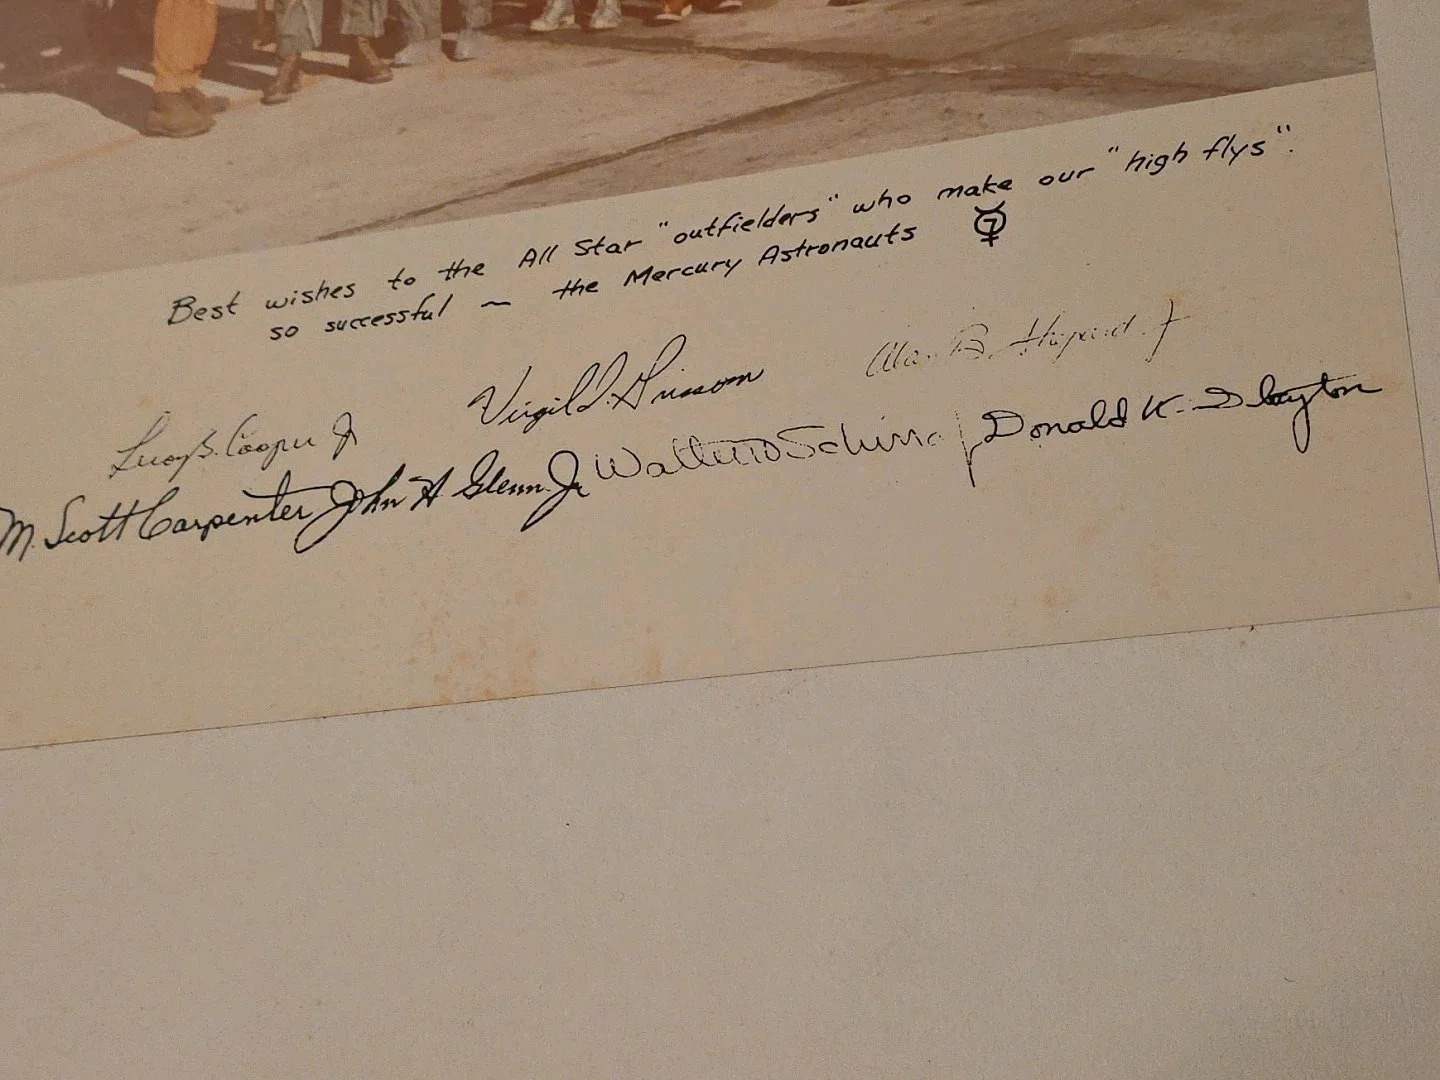 Best wishes to the All Star "outfielders" who make our "high flys".
so successful ~ the Mercury Astronauts 7
Leroy G. Cooper Jr
Virgil I. Grissom
Alan B. Shepard Jr
M. Scott Carpenter
John H Glenn Jr
Walter M Schirra Jr
Donald K. Slayton